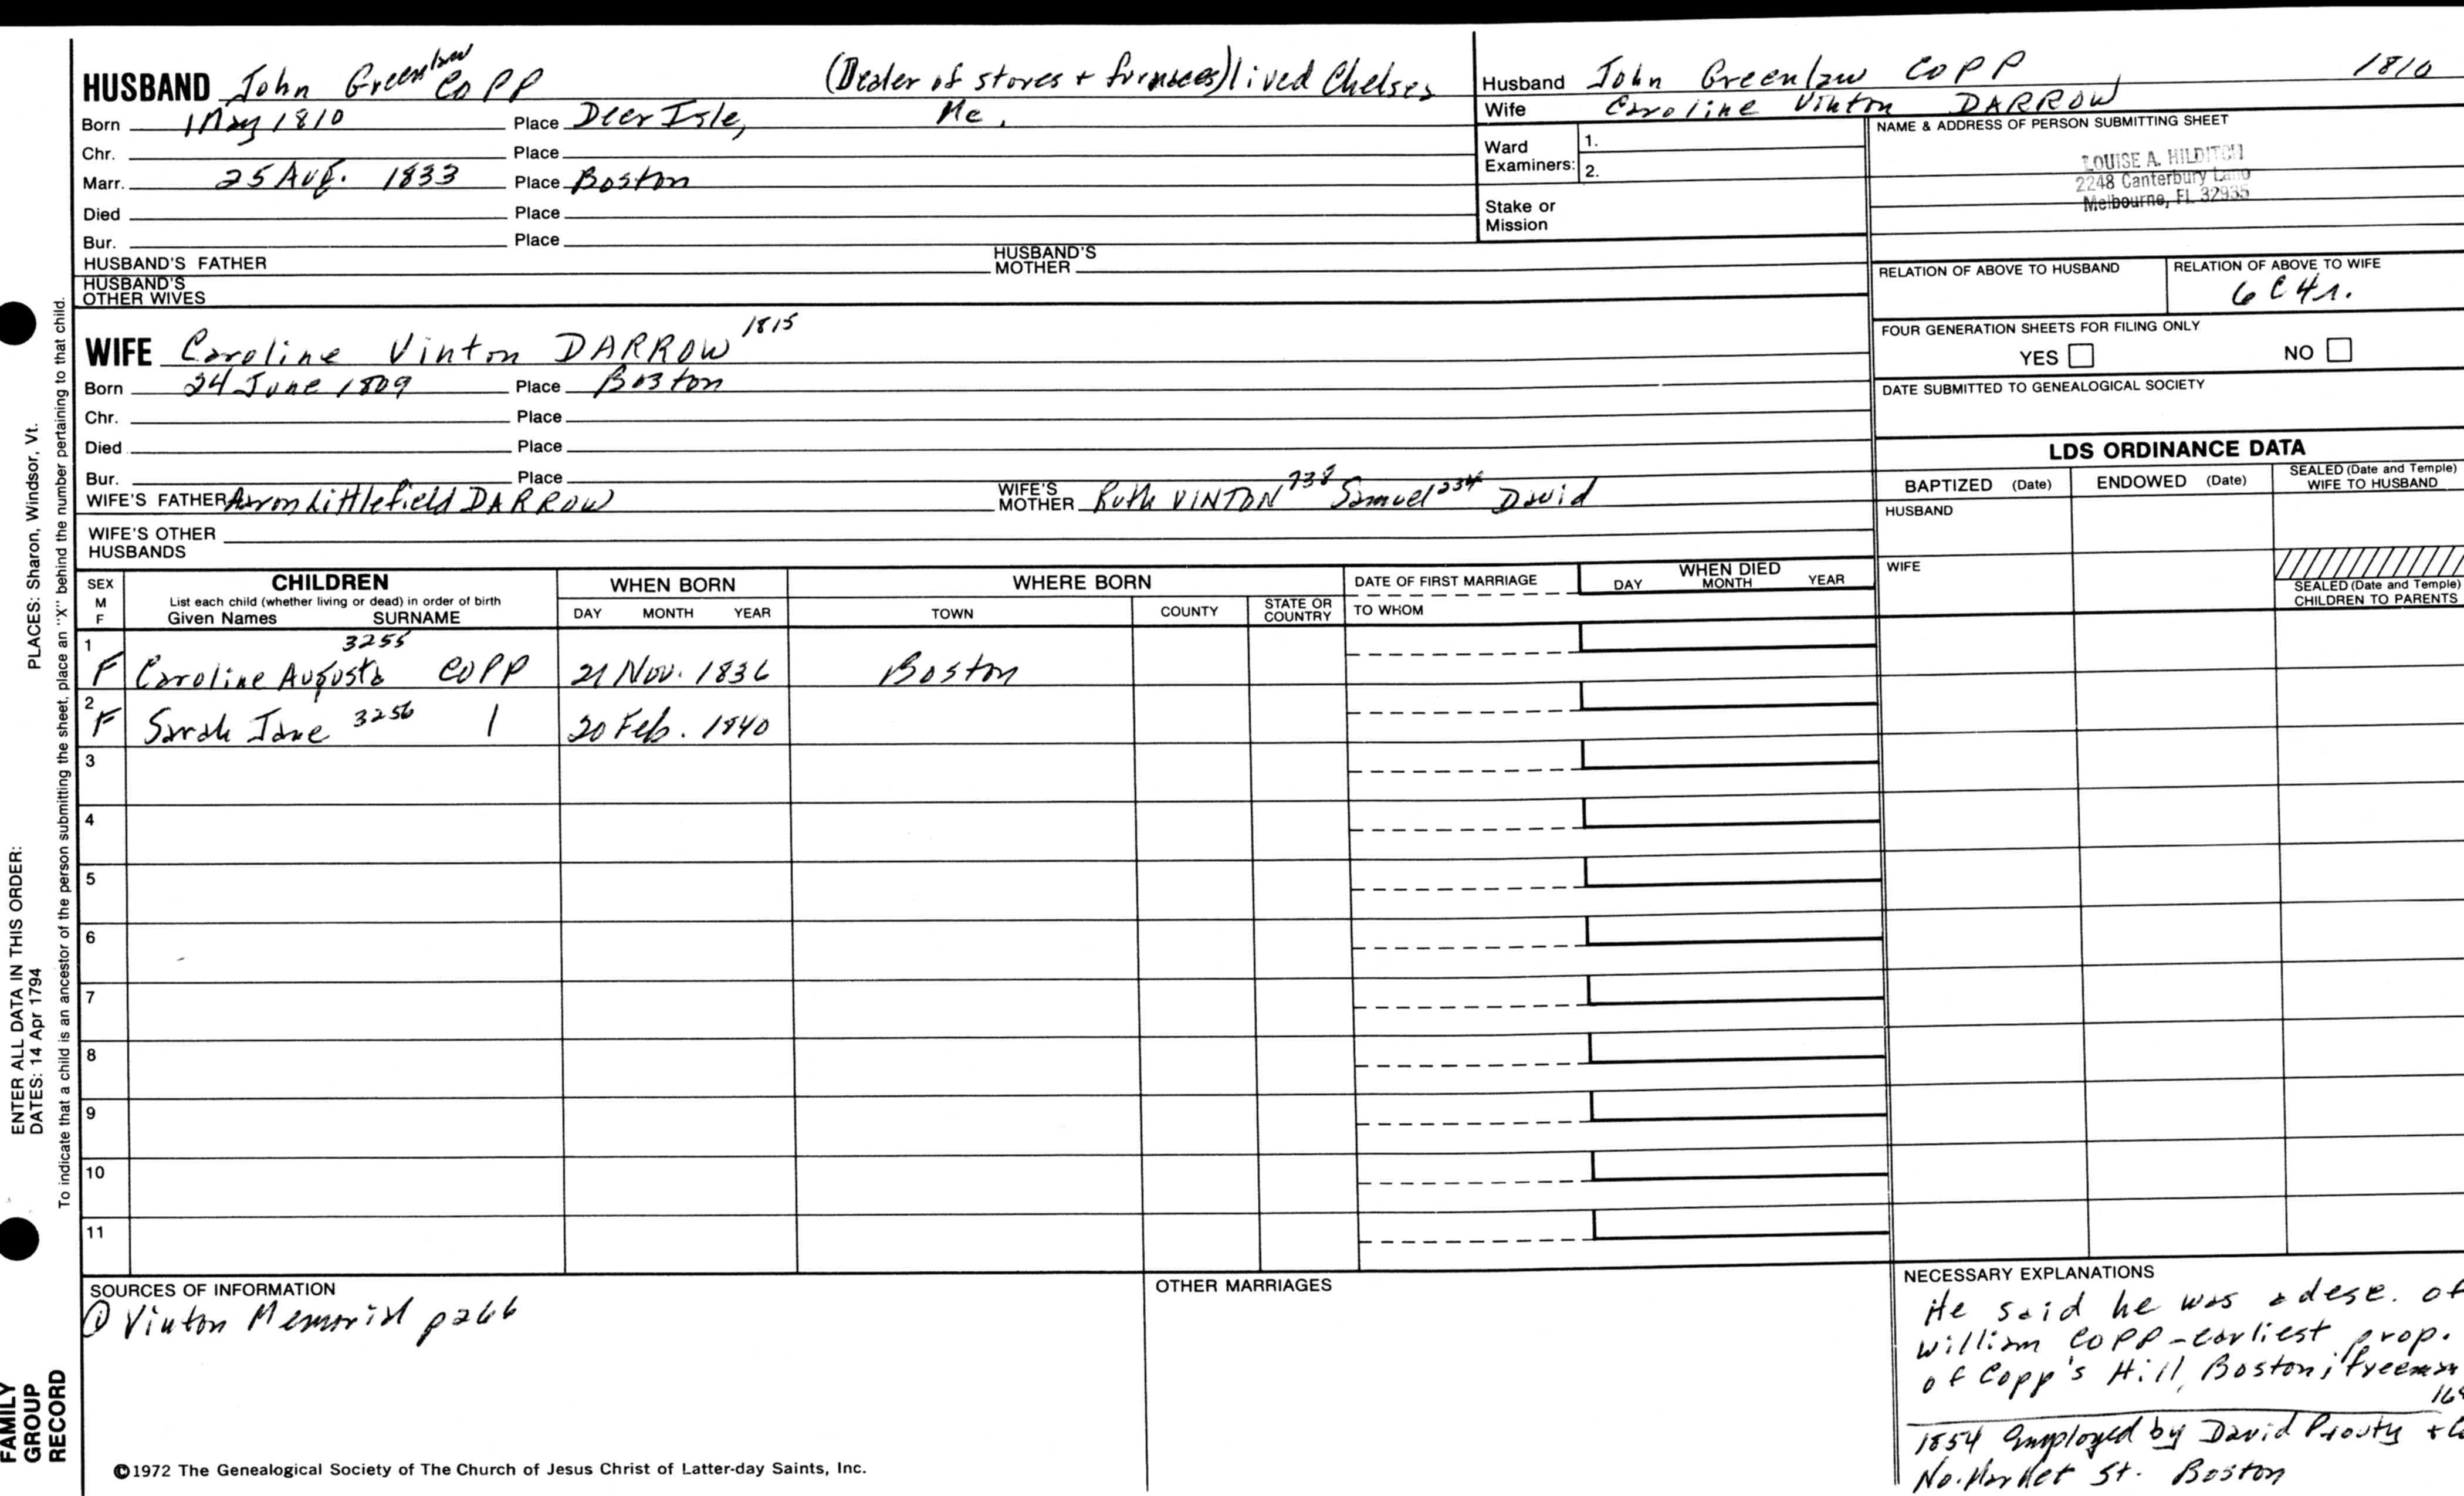 HUSBAND John Greenlaw COPP (Dealer of stoves + furnaces) lived Chelsea
Born 1 May 1810 Place Deer Isle, Me.
Chr. Place
Marr. 25 Aug. 1833 Place Boston
Died Place
Bur. Place
HUSBAND'S FATHER HUSBAND'S MOTHER
HUSBAND'S OTHER WIVES
Husband John Greenlaw COPP 1810
Wife Caroline Vinton DARROW
Ward Examiners: 1.
2.
Stake or Mission
NAME & ADDRESS OF PERSON SUBMITTING SHEET
LOUISE A. HILDITCH
2248 Canterbury Lane
Melbourne, FL 32935
RELATION OF ABOVE TO HUSBAND RELATION OF ABOVE TO WIFE
6C4r.
FOUR GENERATION SHEETS FOR FILING ONLY
YES NO
DATE SUBMITTED TO GENEALOGICAL SOCIETY
WIFE Caroline Vinton DARROW 1815
Born 24 June 1809 Place Boston
Chr. Place
Died Place
Bur. Place
WIFE'S FATHER Aaron Littlefield DARROW WIFE'S MOTHER Ruth VINTON 738 Samuel 234 David
WIFE'S OTHER HUSBANDS
LDS ORDINANCE DATA
BAPTIZED (Date) ENDOWED (Date) SEALED (Date and Temple) WIFE TO HUSBAND
HUSBAND
WIFE
SEALED (Date and Temple) CHILDREN TO PARENTS
SEX M F
CHILDREN
List each child (whether living or dead) in order of birth
Given Names SURNAME
WHEN BORN
DAY MONTH YEAR
WHERE BORN
TOWN COUNTY STATE OR COUNTRY
DATE OF FIRST MARRIAGE
TO WHOM
WHEN DIED
DAY MONTH YEAR
1 F Caroline Augusta 3255 COPP 21 Nov. 1836 Boston
2 F Sarah Jane 3256 | 20 Feb. 1840
3
4
5
6
7
8
9
10
11
SOURCES OF INFORMATION
① Vinton Memorial p266
OTHER MARRIAGES
NECESSARY EXPLANATIONS
He said he was a desc. of
William COPP - earliest prop.
of Copp's Hill, Boston; freeman
1854 Employed by David Prouty +
No. Market St. Boston
©1972 The Genealogical Society of The Church of Jesus Christ of Latter-day Saints, Inc.
PLACES: Sharon, Windsor, Vt.
ENTER ALL DATA IN THIS ORDER:
DATES: 14 Apr 1794
To indicate that a child is an ancestor of the person submitting the sheet, place an "X" behind the number pertaining to that child.
FAMILY
GROUP
RECORD